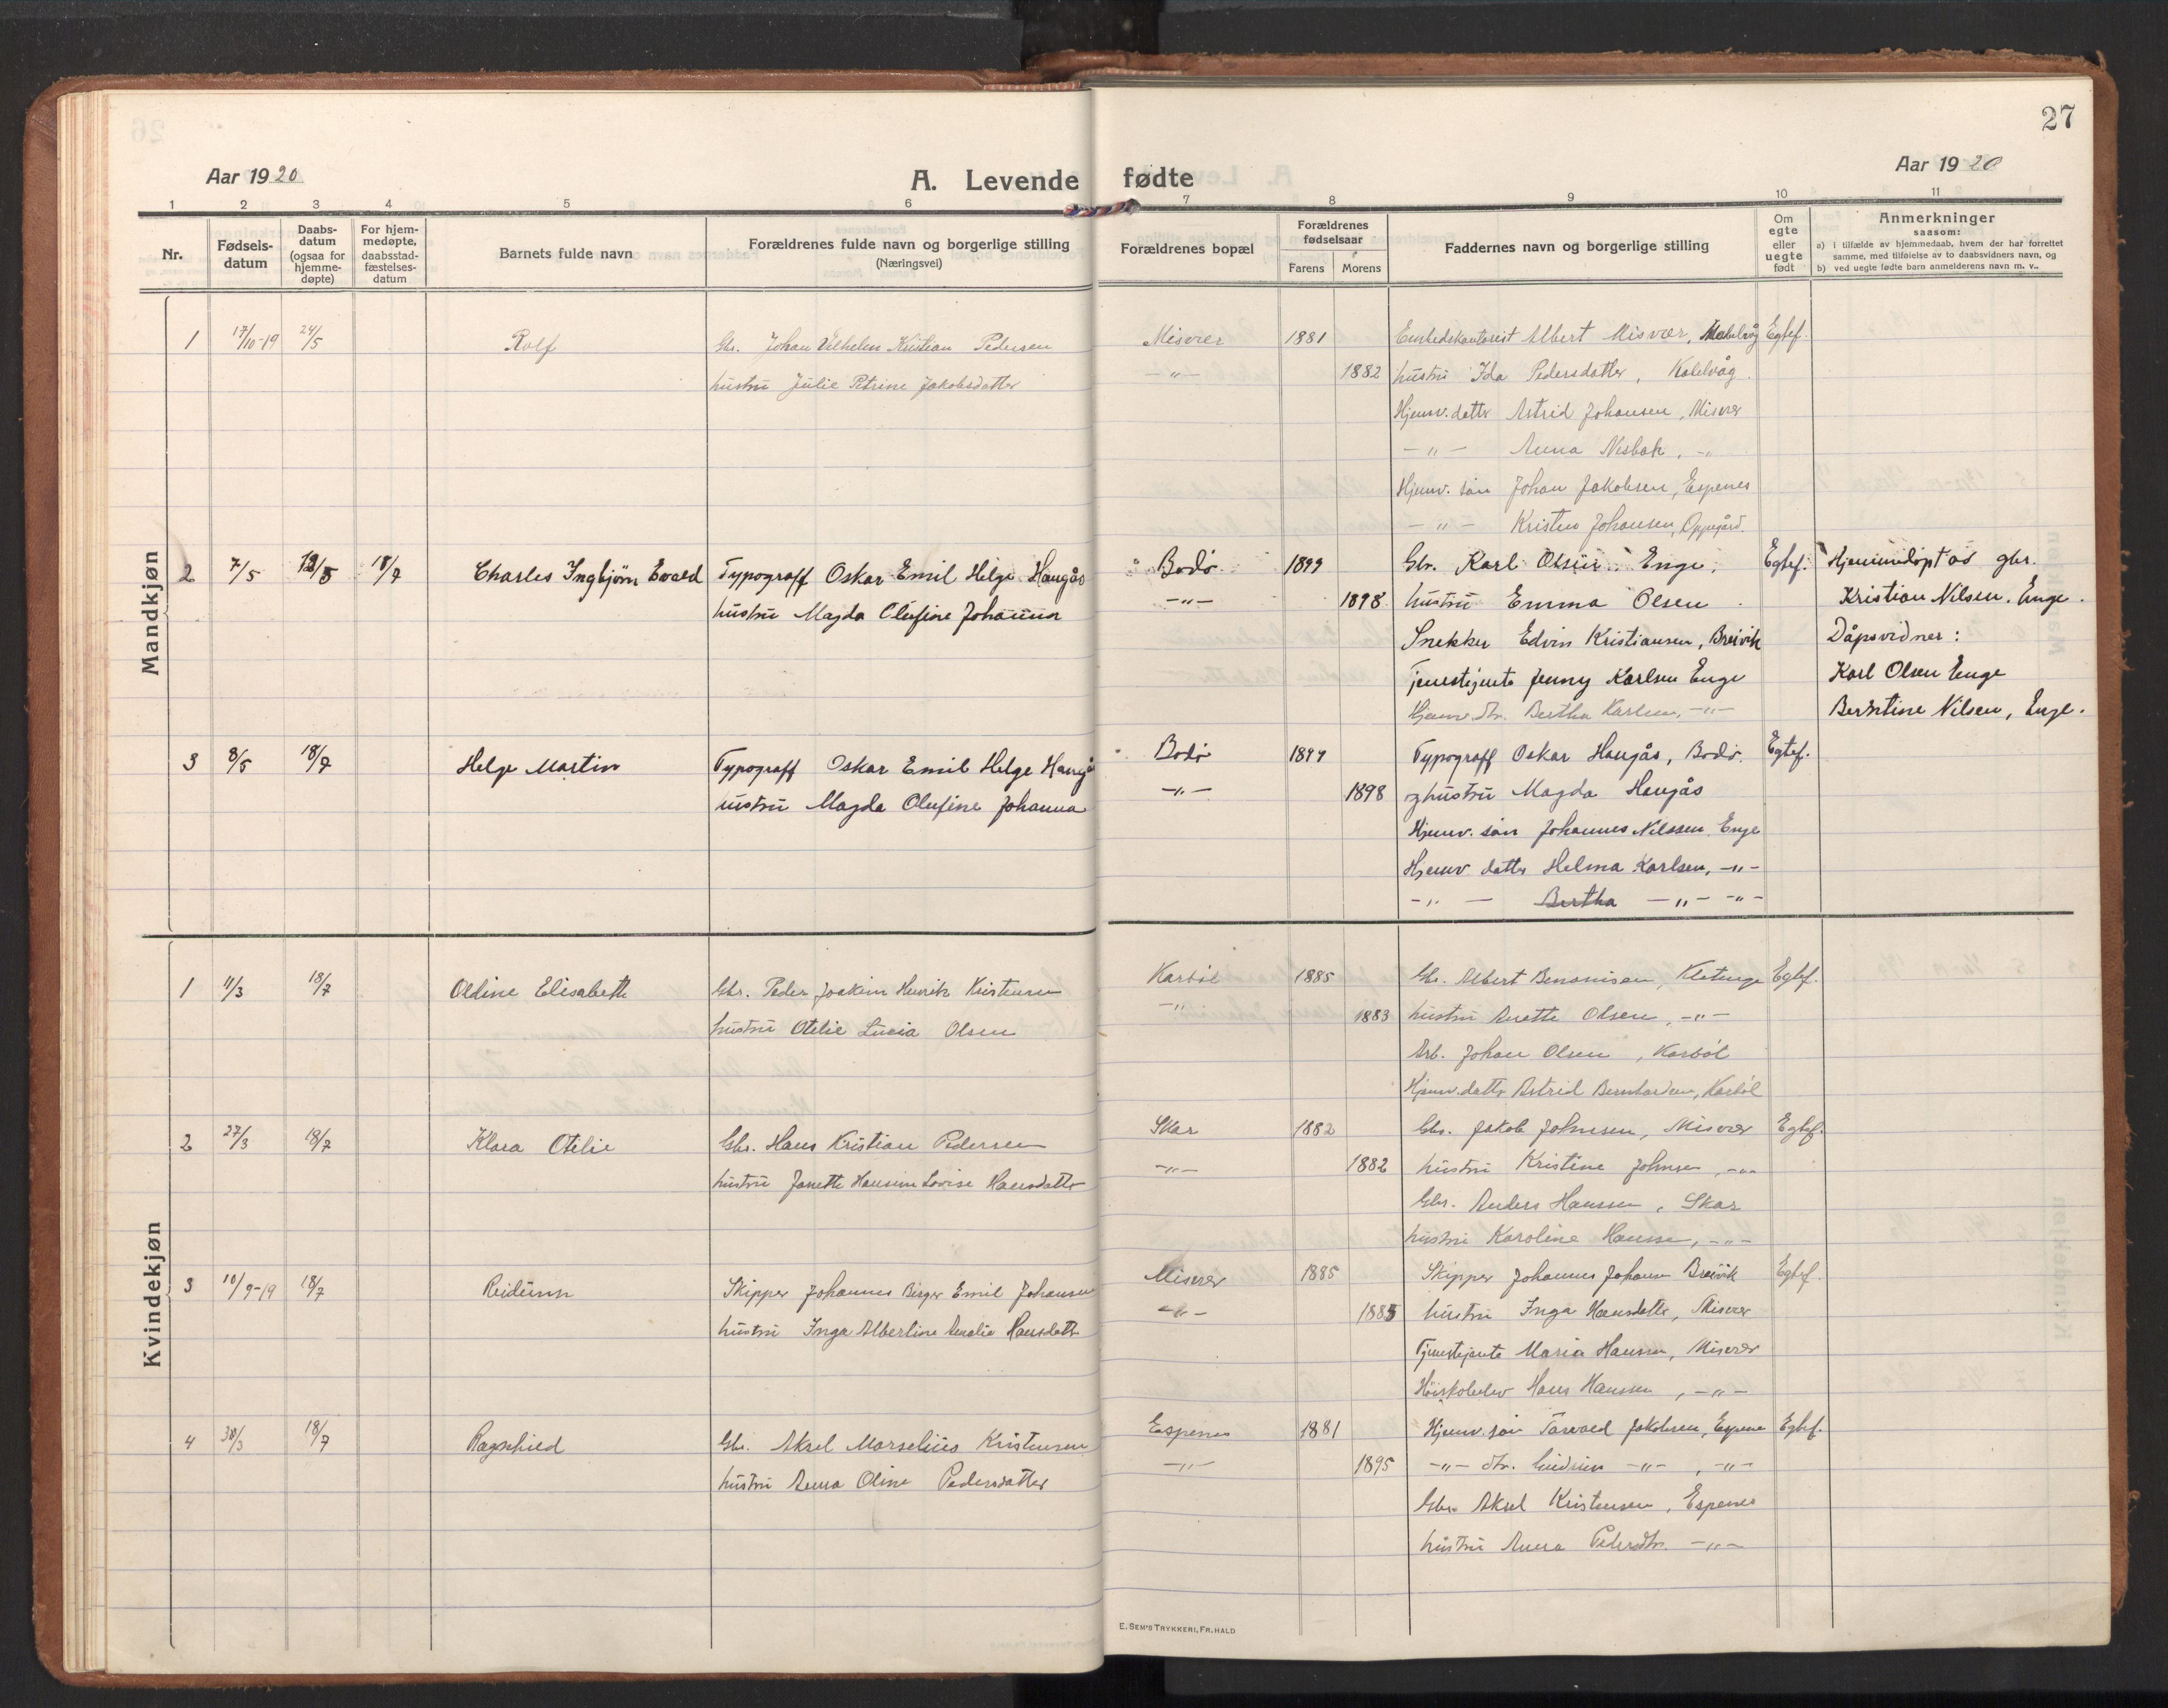 27
Aar 1920
A. Levende fødte
Aar 1920
1 2 3 4 5 6 7 8 9 10 11
Nr.
Fødsels-datum
Daabs-datum (ogsaa for hjemme-døpte)
For hjem-medøpte, daabsstad-fæstelses-datum
Barnets fulde navn
Forældrenes fulde navn og borgerlige stilling
(Næringsvei)
Forældrenes bopæl
Forældrenes fødselsaar
Farens Morens
Faddernes navn og borgerlige stilling
Om egte eller uegte født
Anmerkninger
saasom:
a) i tilfælde av hjemmedaab, hvem der har forrettet
samme, med tilføielse av to daabsvidners navn, og
b) ved uegte fødte barn anmelderens navn m. v..
Mandkjøn
1 17/10-19 24/5 Rolf Gbr. Johan Vilhelm Kristian Pedersen Misvær 1881 Embedskontorist Albert Misvær, Egtef.
hustru Julie Petrine Jakobsdatter -"- 1882 hustru Ida Pedersdatter,
Hjemv. datter Astrid Johansen, Misvær
-"- Anna Nesbak, -"-
Hjemv. søn Johan Jakobsen, Espenes
-"- Kristen Johansen, Oppegård.
2 7/5 18/7 Charles Ingbjørn Evald Typograff Oskar Emil Helge Haugås Bodø 1899 Gbr. Karl Enge. Egtef. Hjemmedøpt av gbr.
hustru Magda Olufine Johanna -"- 1898 hustru Emma Olsen Kristian Nilsen, Enge.
Snekker Edvin Kristiansen, Breivik Dåpsvidner:
Tjenestejente Jenny Karlsen Enge Karl Olsen Enge
Hjemv. dtr. Bertha Karlsen, -"- Berntine Nilsen, Enge.
3 8/5 18/7 Helge Martin Typograff Oskar Emil Helge Haugås Bodø 1899 Typograff Oskar Haugås, Bodø. Egtef.
hustru Magda Olufine Johanna -"- 1898 og hustru Magda Haugås
Hjemv. søn Johannes Nilssen Enge
Hjemv datter Helma Karlsen, -"-
-"- Bertha -"- -"-
Kvindekjøn
1 11/3 18/7 Oldine Elisabeth Gbr. Peder Joakim Henrik Kristensen Karbøl 1885 Gbr. Albert Benonisen, Egtef.
hustru Otelie Lucia Olsen -"- 1883 hustru Anette Olsen, -"-
Arb. Johan Olsen, Karbøl
Hjemv. datter Astrid Bernhardsen, Karbøl
2 27/3 18/7 Klara Otelie Gbr. Hans Kristian Pedersen Skar 1882 Gbr. Jakob Johnsen, Misvær Egtef.
hustru Janette Hansine Lovise Hansdatter -"- 1882 hustru Kristine Johnsen, -"-
Gbr. Anders Hanssen, Skar
hustru Karoline Hanssen, -"-
3 10/9-19 18/7 Reidunn Skipper Johannes Birger Emil Johansen Misvær 1885 Skipper Johannes Johansen Breivik Egtef.
hustru Inga Albertine Amalie Hansdatter -"- 1885 hustru Inga Hansdatter, Misvær
Tjenestejente Maria Hanssen, Misvær
Høiskoleelev Hans Hanssen, -"-
4 30/3 18/7 Ragnhild Gbr. Aksel Marselius Kristensen Espenes 1881 Hjemv. søn Torvald Jakobsen, Espenes Egtef.
hustru Anna Oline Pedersdatter -"- 1895 -"- dtr. Gudrun -"-, -"-
Gbr. Aksel Kristensen, Espenes
hustru Anna Pedersdtr. -"-
E. SEM'S TRYKKERI, FR. HALD